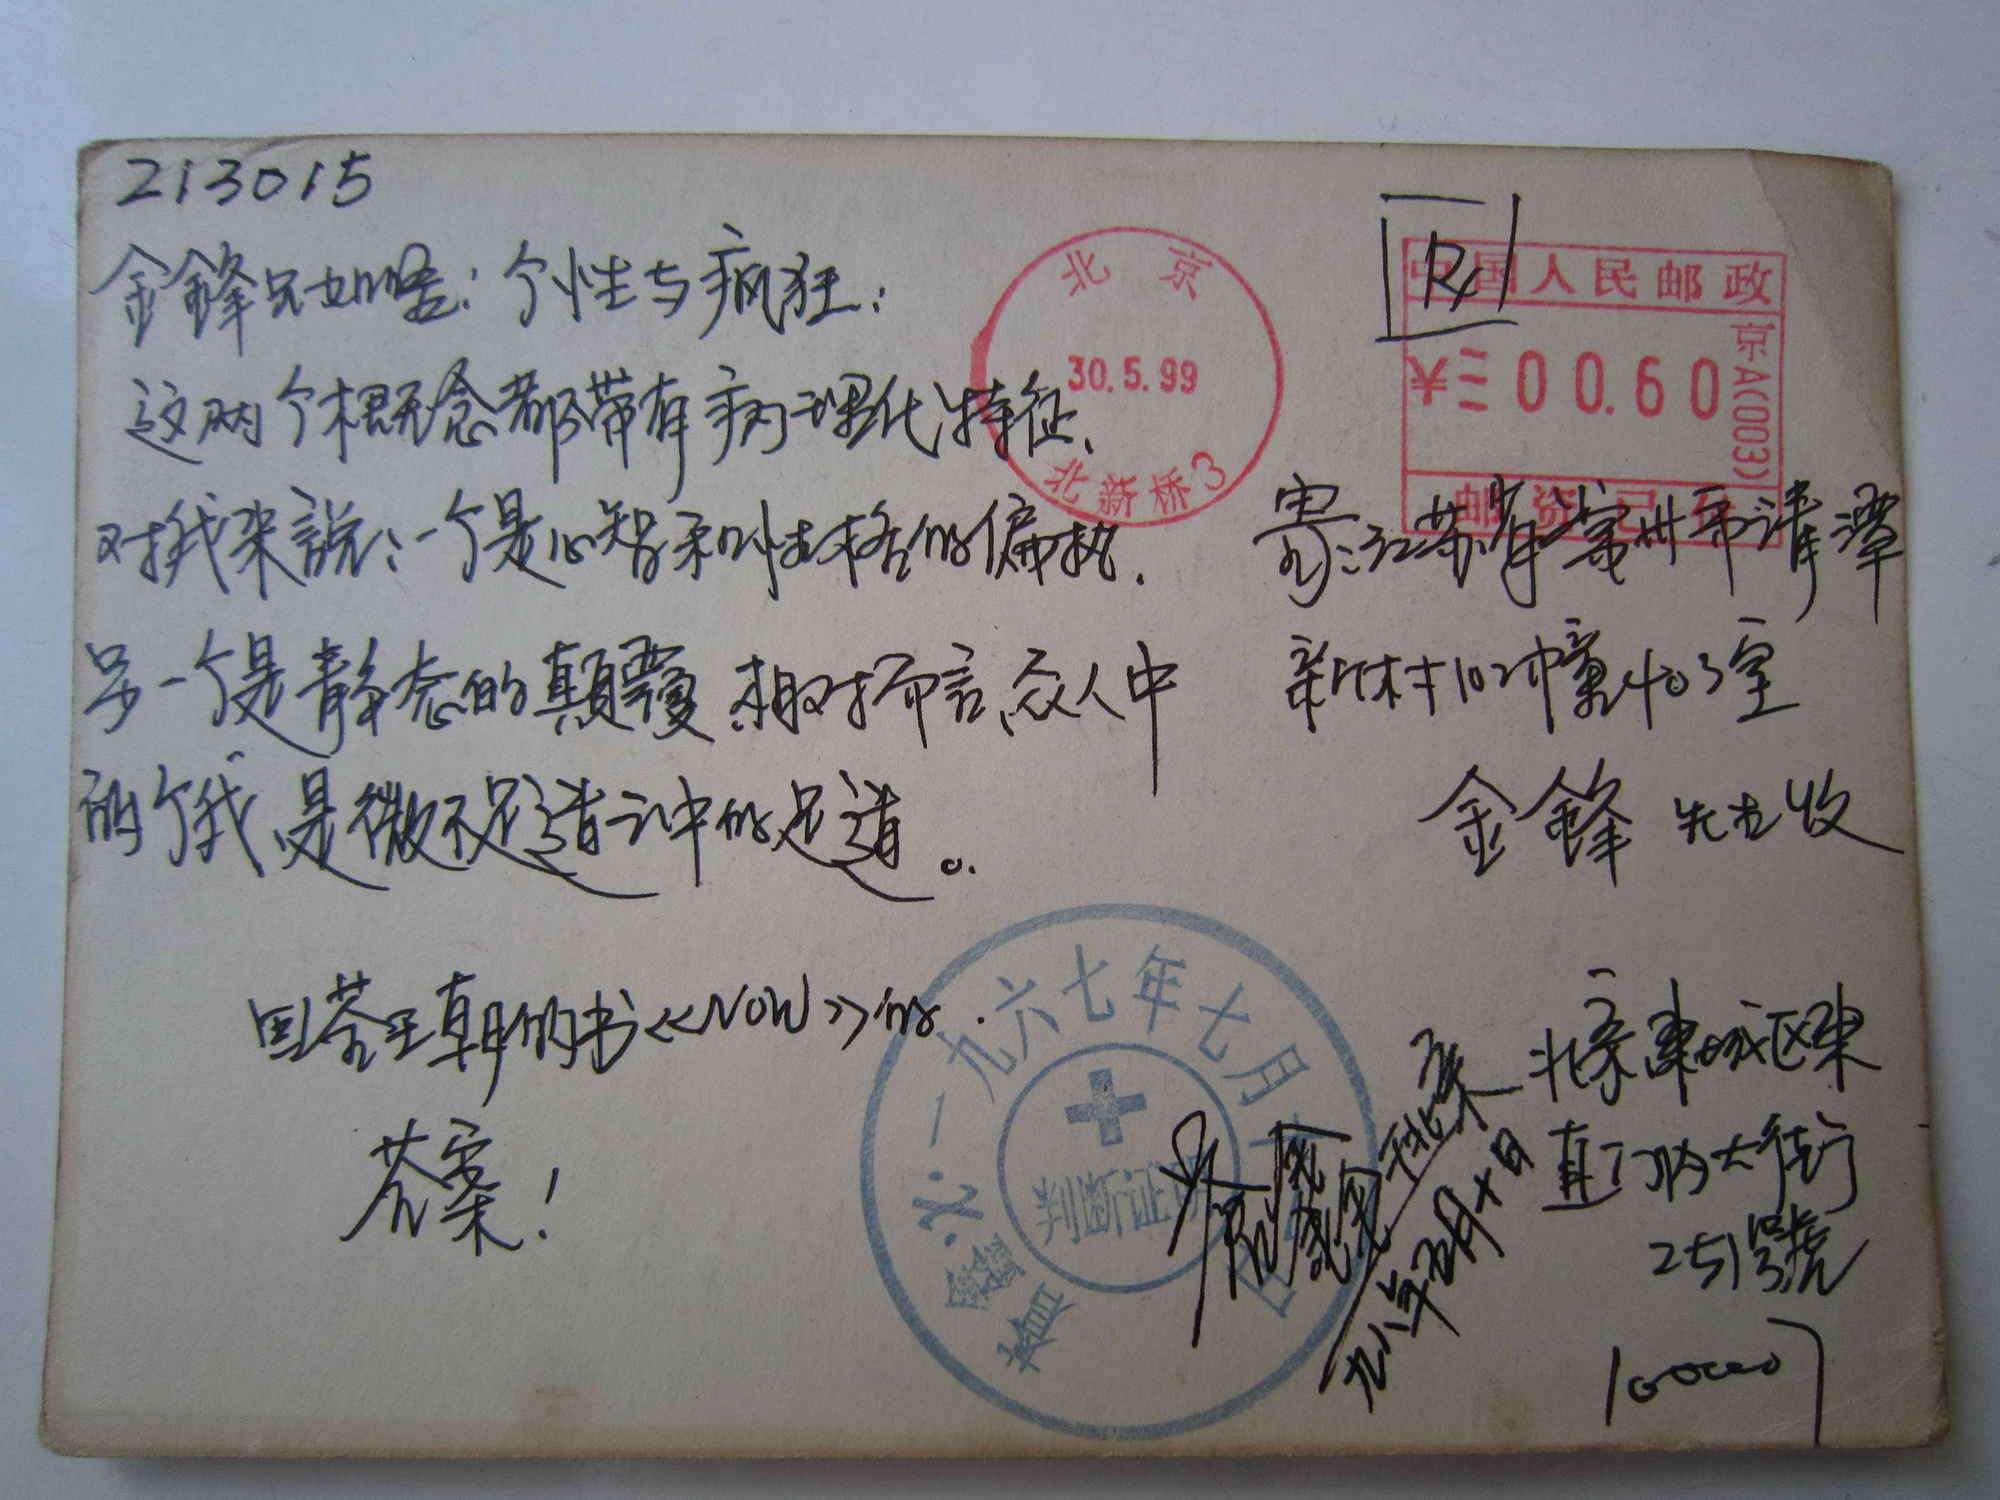 213015
金鋒兄如晤：个性与疯狂：
这两个概念都带有病理化特征、
对我来説：一个是心智和性格的偏执.
另一个是静态的颠覆.相对而言、众人中
的个我、是微不足道之中的足道。
回答王朝的书《NOW》的.
答案！
北京
30.5.99
北新桥3
Rx
中国人民邮政
¥ 00.60
京A(003)
邮资已
寄：江苏省常州市清潭
新村102幢403室
金鋒 先生收
一九六七年七月
判断证
北京東城区東
直门内大街
251號
100007
九八年五月十日